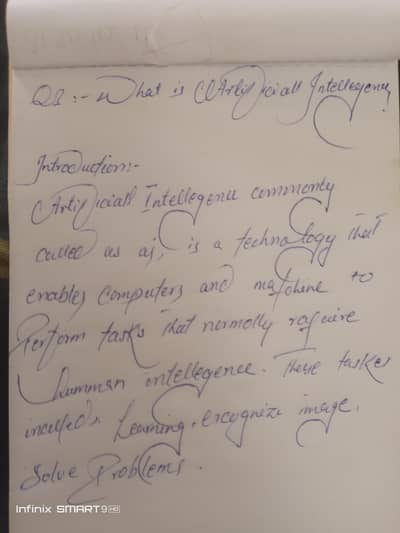 Q1:- What is Artificiall Intellegency?
Introduction:-
Artificiall Intellegence commonly
called as ai, is a technology that
enables computers and machine to
Perform tasks That normolly raquire
humman intellegence. These taskes
includes Learning, recognize image,
Solve Problems.
Infinix SMART 9 HD